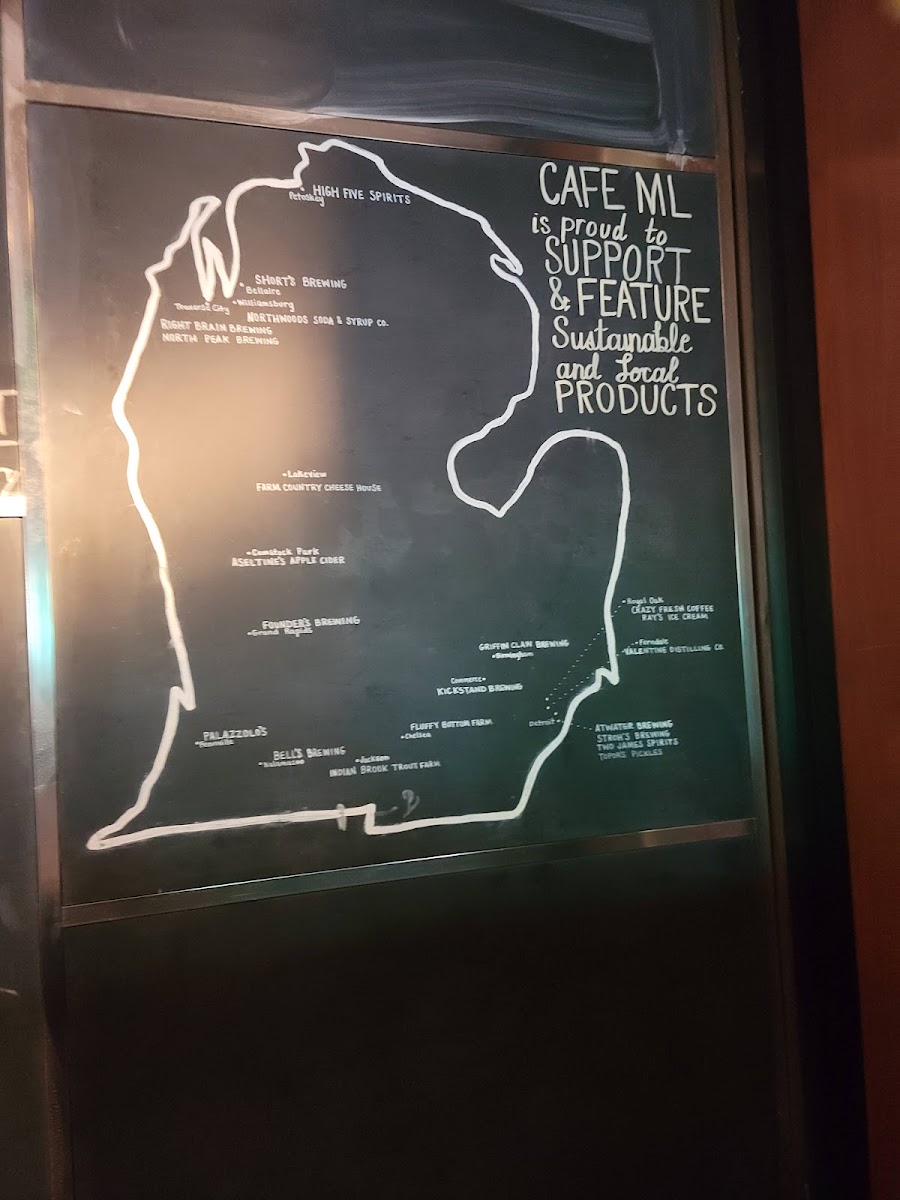 CAFE ML
is proud to
SUPPORT
& FEATURE
Sustainable
and Local
PRODUCTS
HIGH FIVE SPIRITS
Petoskey
SHORT'S BREWING
Bellaire
Traverse City
Williamsburg
NORTHWOODS SODA & SYRUP CO.
RIGHT BRAIN BREWING
NORTH PEAK BREWING
Lakeview
FARM COUNTRY CHEESE HOUSE
Comstock Park
ASELTINE'S APPLE CIDER
FOUNDER'S BREWING
Grand Rapids
Royal Oak
CRAZY FRESH COFFEE
RAY'S ICE CREAM
GRIFFIN CLAW BREWING
Birmingham
Ferndale
VALENTINE DISTILLING CO.
Commerce
KICKSTAND BREWING
FLUFFY BOTTOM FARM
Chelsea
Detroit
ATWATER BREWING
STROH'S BREWING
TWO JAMES SPIRITS
TOPOR'S PICKLES
PALAZZOLO'S
BELL'S BREWING
Kalamazoo
Jackson
INDIAN BROOK TROUT FARM